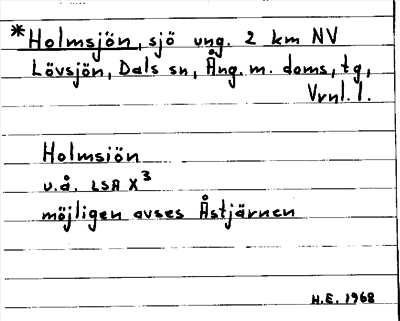 *Holmsjön, sjö ung. 2 km NV
Lövsjön, Dals sn, Ång. m. doms, tg,
Vrnl. l.
Holmsiön
u.å. LSA X3
möjligen avses Åstjärnen
H.E. 1968